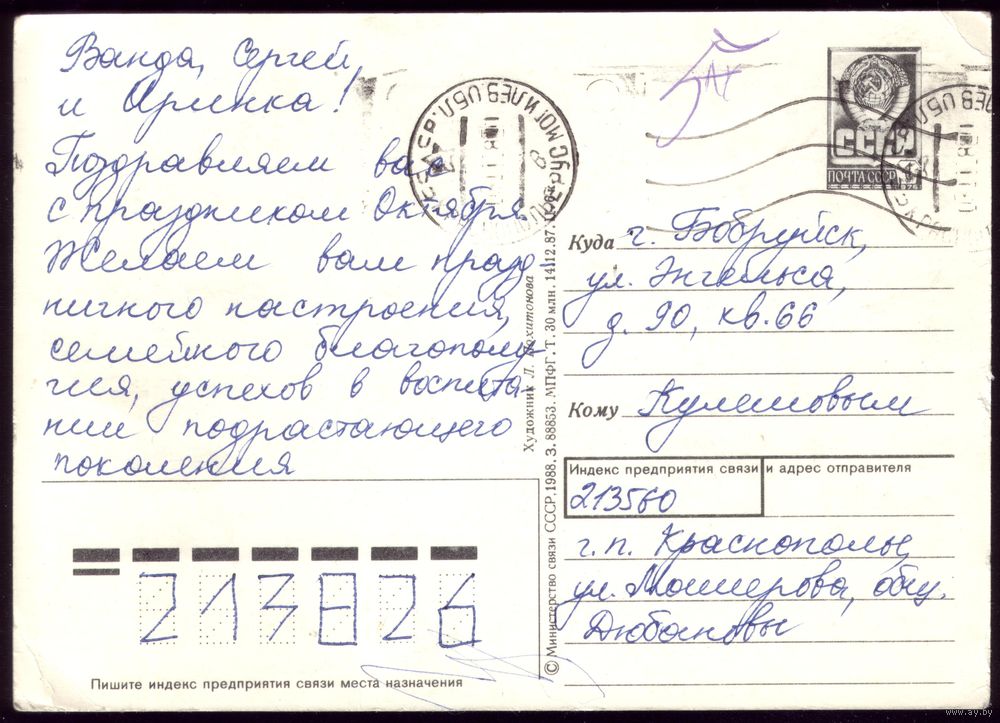 Ванда, Сергей,
и Аринка!
Поздравляем вас
с праздником Октября.
Желаем вам празд
ничного настроения,
семейного благополу-
чия, успехов в воспита-
нии подрастающего
поколения
СССР
ПОЧТА СССР
Куда г. Бобруйск,
ул. Энгельса,
д. 90, кв. 66
Кому Кулешовым
Индекс предприятия связи и адрес отправителя
213560
г.п. Краснополье,
ул. Машерова, общ.
Дюбановы
213826
Пишите индекс предприятия связи места назначения
Художник Л. Похитонова
© Министерство связи СССР, 1988. З. 88853. МПФГ. Т. 30 млн. 14.12.87.
www.ay.by